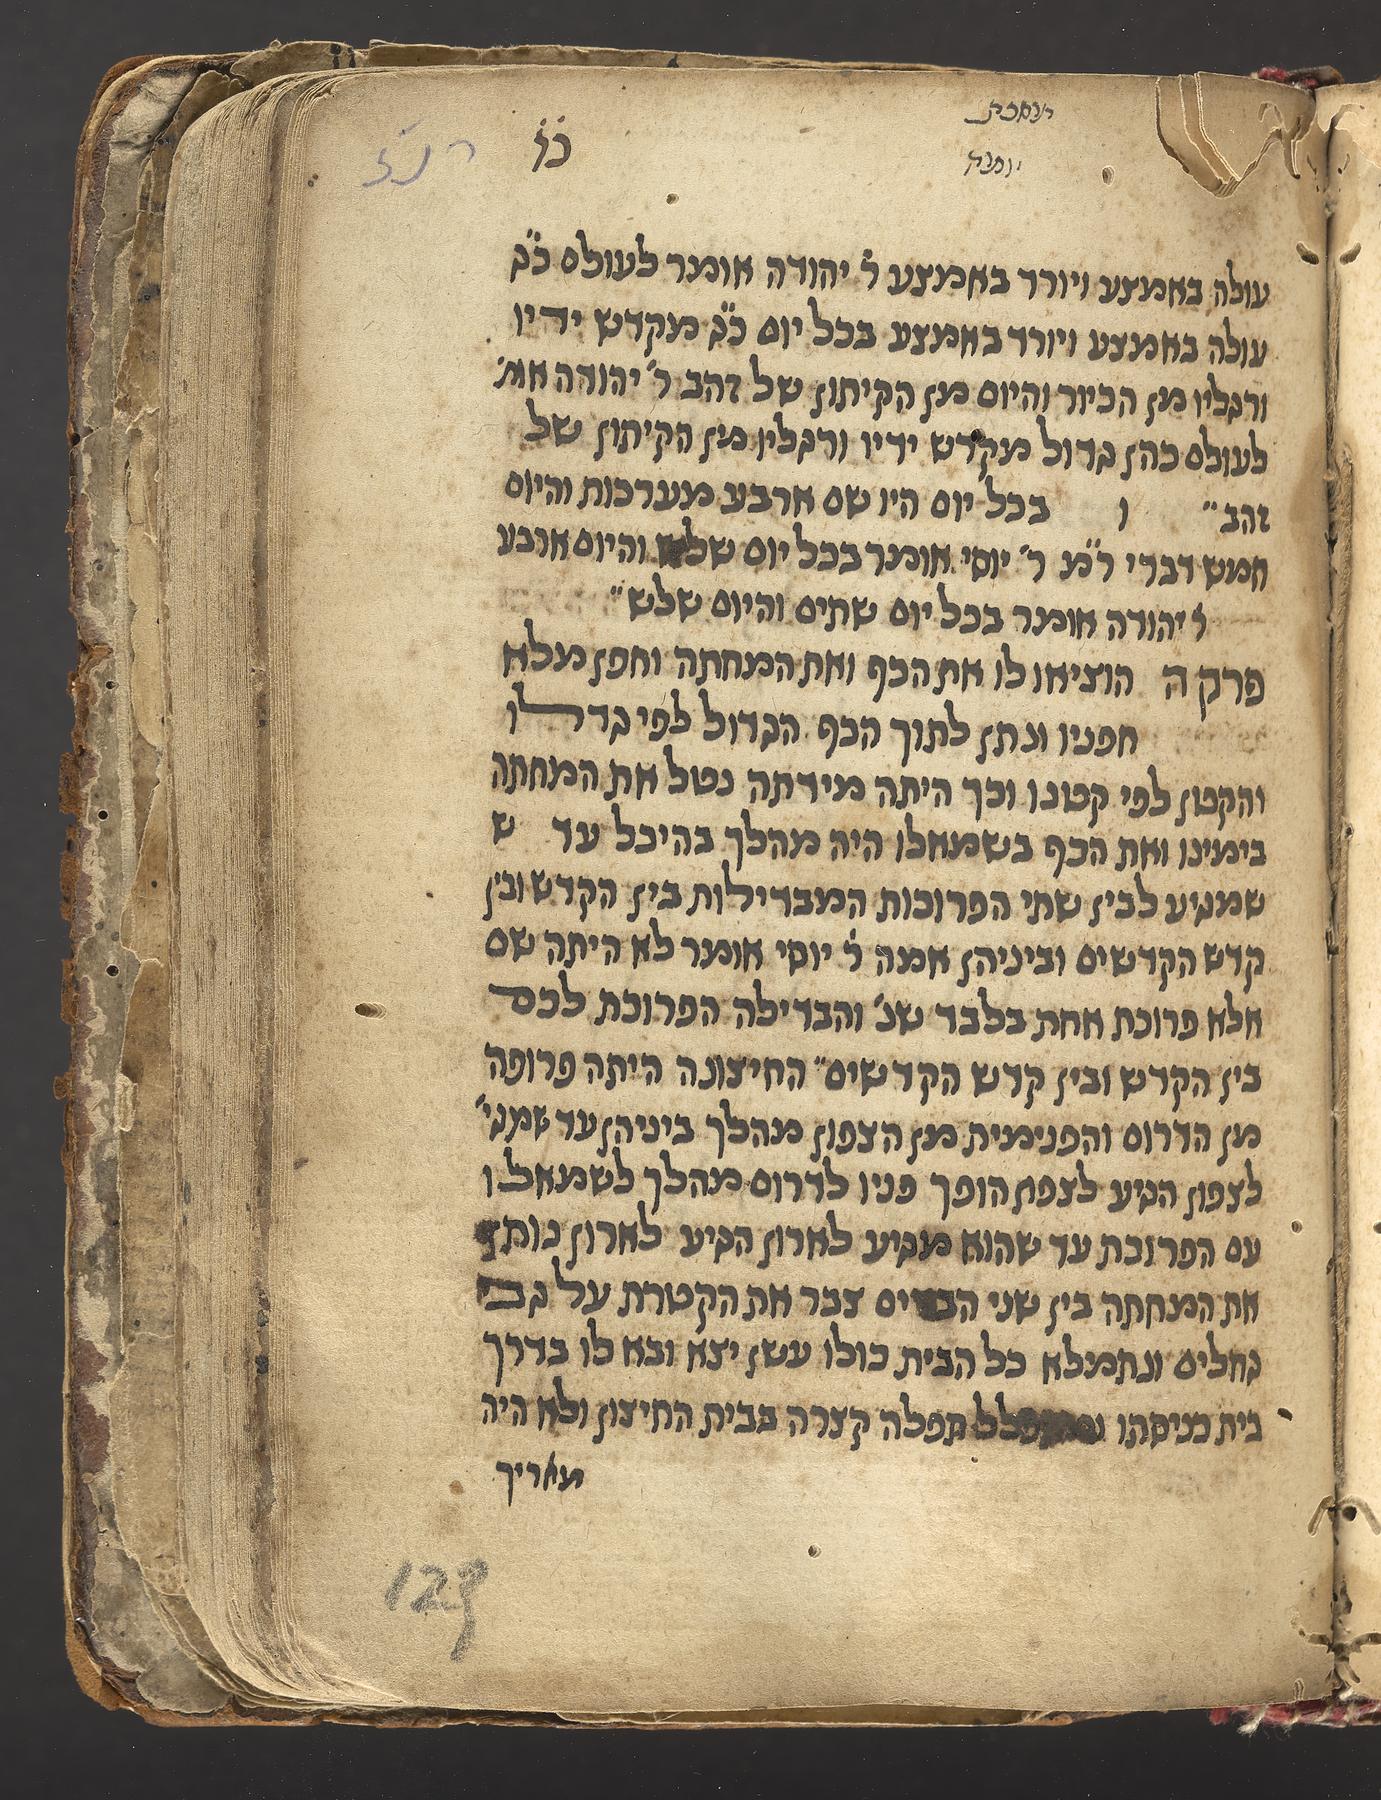 מסכת
יומא
כז
עולה באמצע ויורד באמצע ר' יהודה אומר לעולם כ"ג
עולה באמצע ויורד באמצע בכל יום כ"ג מקדש ידיו
ורגליו מן הכיור והיום מן הקיתון של זהב ר' יהודה אומ'
לעולם כהן גדול מקדש ידיו ורגליו מן הקיתון של
זהב" ו בכל יום היו שם ארבע מערכות והיום
חמש דברי ר"מ ר' יוסי אומר בכל יום שלש והיום ארבע
ר' יהודה אומר בכל יום שתים והיום שלש"
פרק ה הוציאו לו את הכף ואת המחתה וחפן מלא
חפניו ונתן לתוך הכף הגדול לפי גדלו
והקטן לפי קטונו וכך היתה מידתה נטל את המחתה
בימינו ואת הכף בשמאלו היה מהלך בהיכל עד ש
שמגיע לבין שתי הפרוכות המבדילות בין הקדש ובין
קדש הקדשים וביניהן אמה ר' יוסי אומר לא היתה שם
אלא פרוכת אחת בלבד שנ' והבדילה הפרוכת לכם
בין הקדש ובין קדש הקדשים" החיצונה היתה פרופה
מן הדרום והפנימית מן הצפון מהלך ביניהן עד שמגי'
לצפון הגיע לצפון הופך פניו לדרום מהלך לשמאלו
עם הפרוכת עד שהוא מגיע לארון הגיע לארון נותן
את המחתה בין שני הבדים צבר את הקטרת על גבי
גחלים ונתמלא כל הבית כולו עשן יצא ובא לו בדרך
בית כניסתו תפלה קצרה בבית החיצון ולא היה
מאריך